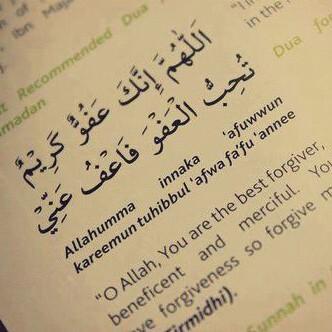 Ibn Maja
"I
in the n
st Recommended Dua
Dua fo
amadan
اَللّٰهُمَّ إِنَّكَ عَفُوٌّ كَرِيْمٌ
تُحِبُّ الْعَفْوَ فَاعْفُ عَنِّيْ
Allahumma innaka 'afuwwun
kareemun tuhibbul 'afwa fa'fu 'annee
"O Allah, You are the best forgiver,
beneficent and merciful. You
ve forgiveness so forgive m
irmidhi).
unnah in